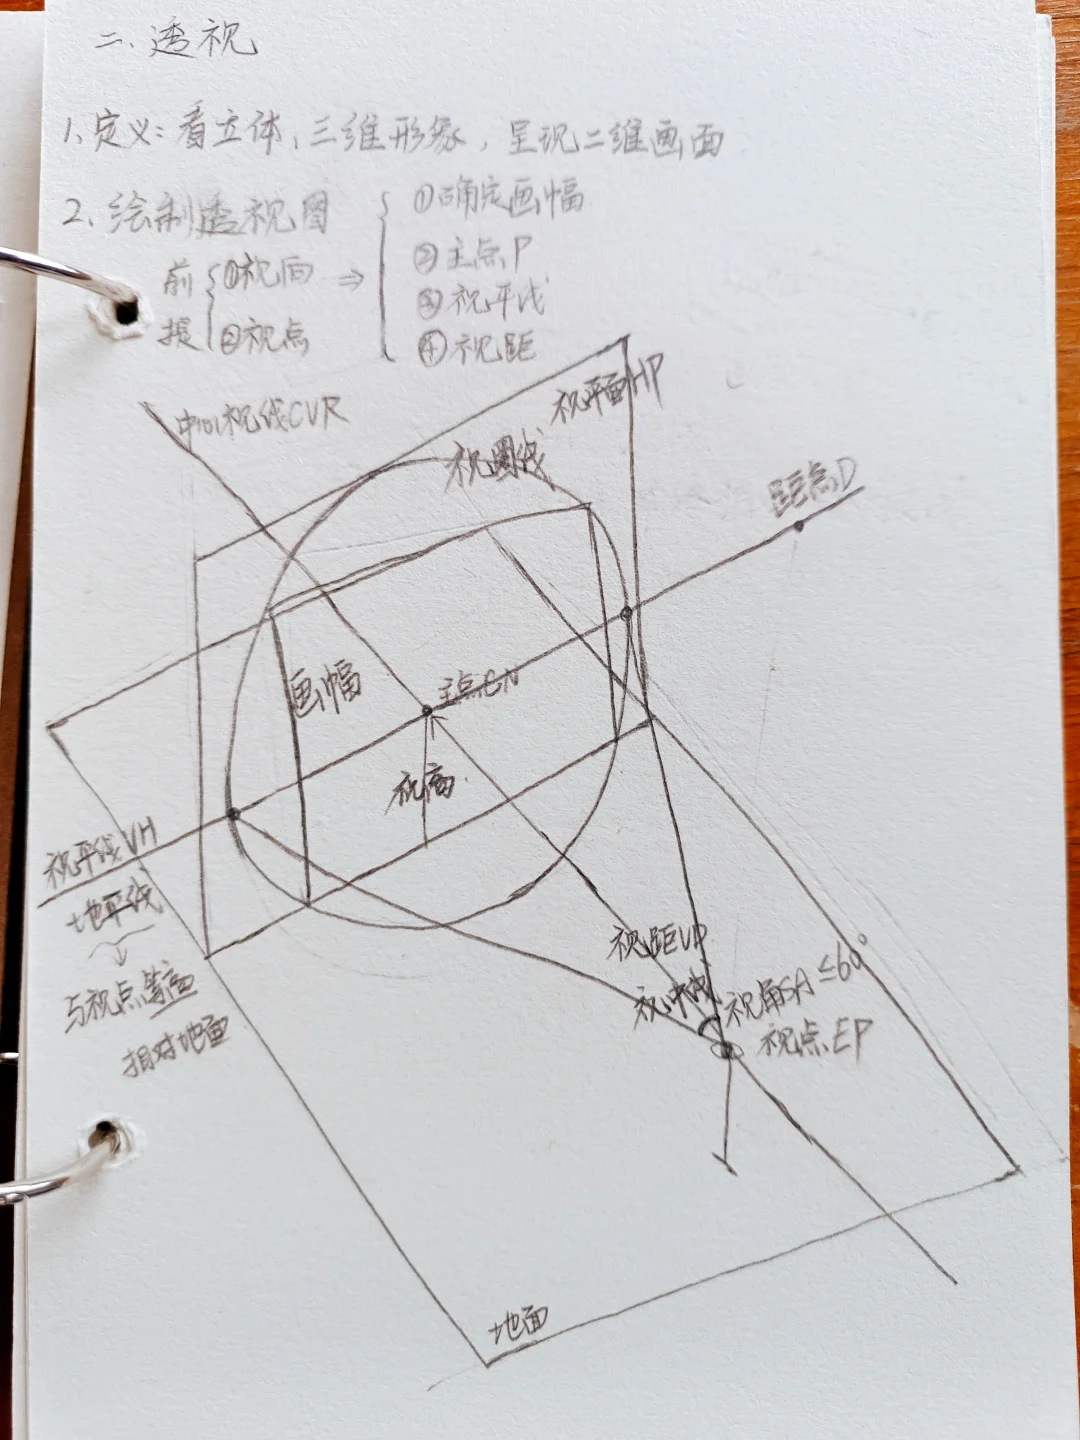 二、透视
1、定义：看立体、三维形象，呈现二维画面
2、绘制透视图
前提 ①视向 ②视点 ⇒
①确定画幅
②主点P
③视平线
④视距
中心视线CVR
视平面HP
视圈线
距点D
画幅
主点CN
视高
视平线VH
地平线
与视点等高
相对地面
视距VD
视中线
视角SA≤60°
视点EP
地面